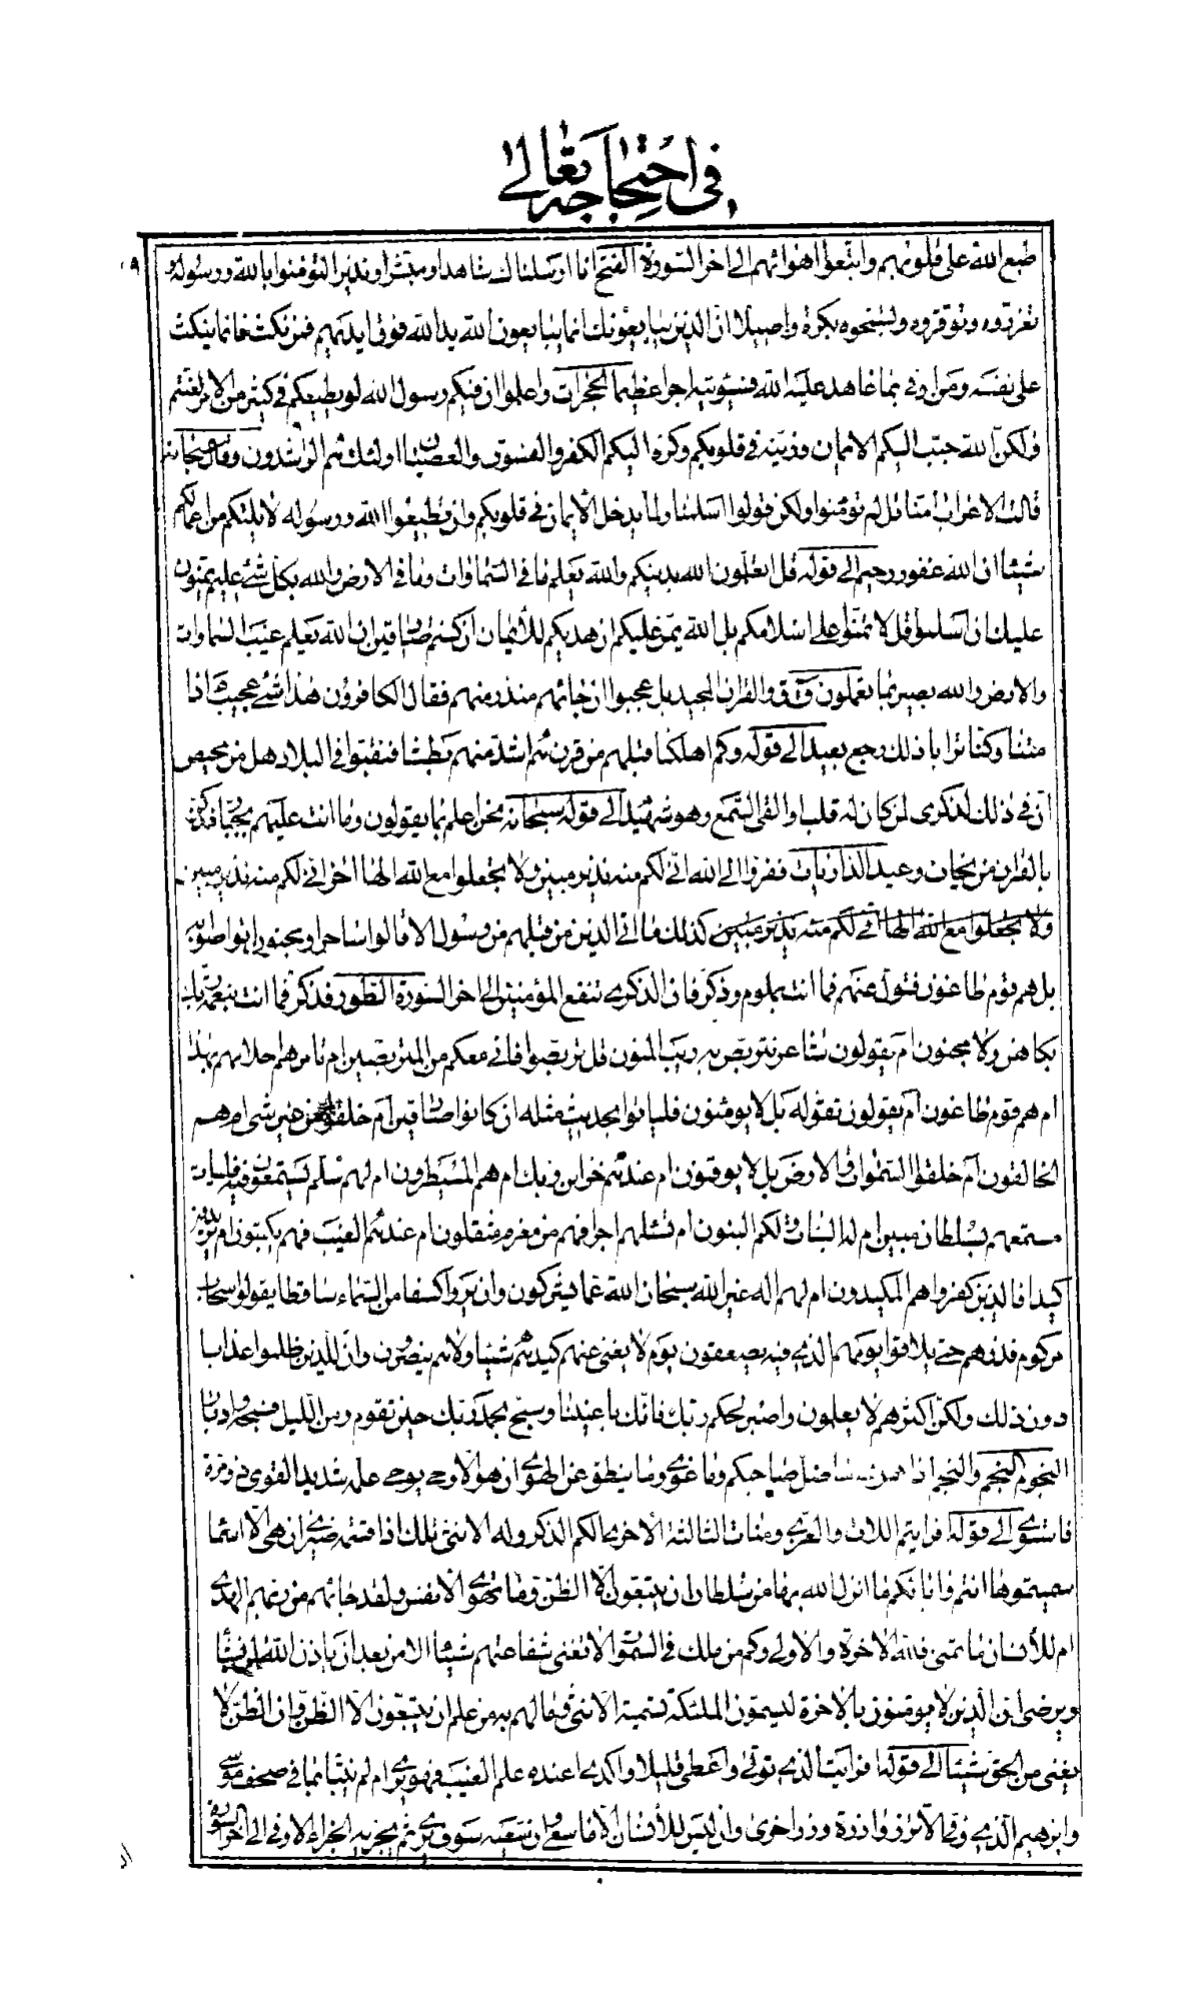 في احتجاجه تعالى
طبع الله على قلوبهم واتبعوا اهوائهم الى اخر السورة الفتح انا ارسلناك شاهدا ومبشرا ونذيرا لتؤمنوا بالله ورسوله
تعزروه وتوقروه وتسبحوه بكرة واصيلا ان الذين يبايعونك انما يبايعون الله يد الله فوق ايديهم فمن نكث فانما ينكث
على نفسه ومن اوفى بما عاهد عليه الله فسيؤتيه اجرا عظيما الحجرات واعلموا ان فيكم رسول الله لو يطيعكم في كثير من الامر لعنتم
ولكن الله حبب اليكم الايمان وزينه في قلوبكم وكره اليكم الكفر والفسوق والعصيان اولئك هم الراشدون وقال سبحانه
قالت الاعراب امنا قل لم تؤمنوا ولكن قولوا اسلمنا ولما يدخل الايمان في قلوبكم وان تطيعوا الله ورسوله لا يلتكم من اعمالكم
شيئا ان الله غفور رحيم الى قوله قل اتعلمون الله بدينكم والله يعلم ما في السماوات وما في الارض والله بكل شئ عليم يمنون
عليك ان اسلموا قل لا تمنوا على اسلامكم بل الله يمن عليكم ان هديكم للايمان ان كنتم صادقين ان الله يعلم غيب السماوات
والارض والله بصير بما تعملون ق ق والقران المجيد بل عجبوا ان جائهم منذر منهم فقال الكافرون هذا شئ عجيب ءاذا
متنا وكنا ترابا ذلك رجع بعيد الى قوله وكم اهلكنا قبلهم من قرن هم اشد منهم بطشا فنقبوا في البلاد هل من محيص
ان في ذلك لذكرى لمن كان له قلب او القى السمع وهو شهيد الى قوله سبحانه نحن اعلم بما يقولون وما انت عليهم بجبار فذكر
بالقران من يخاف وعيد الذاريات ففروا الى الله اني لكم منه نذير مبين ولا تجعلوا مع الله الها اخر اني لكم منه نذير مبين
ولا تجعلوا مع الله الها اني لكم منه نذير مبين كذلك ما اتى الذين من قبلهم من رسول الا قالوا ساحر او مجنون اتواصوا به
بل هم قوم طاغون فتول عنهم فما انت بملوم وذكر فان الذكرى تنفع المؤمنين الى اخر السورة الطور فذكر فما انت بنعمة ربك
بكاهن ولا مجنون ام يقولون شاعر نتربص به ريب المنون قل تربصوا فاني معكم من المتربصين ام تامرهم احلامهم بهذا
ام هم قوم طاغون ام يقولون تقوله بل لا يؤمنون فلياتوا بحديث مثله ان كانوا صادقين ام خلقوا من غير شئ ام هم
الخالقون ام خلقوا السموات والارض بل لا يوقنون ام عندهم خزاين ربك ام هم المسيطرون ام لهم سلم يستمعون فيه فليات
مستمعهم بسلطان مبين ام له البنات ولكم البنون ام تسئلهم اجرا فهم من مغرم مثقلون ام عندهم الغيب فهم يكتبون ام يريدون
كيدا فالذين كفروا هم المكيدون ام لهم اله غير الله سبحان الله عما يشركون وان يروا كسفا من السماء ساقطا يقولوا سحاب
مركوم فذرهم حتى يلاقوا يومهم الذي فيه يصعقون يوم لا يغني عنهم كيدهم شيئا ولا هم ينصرون وان للذين ظلموا عذابا
دون ذلك ولكن اكثرهم لا يعلمون واصبر لحكم ربك فانك باعيننا وسبح بحمد ربك حين تقوم ومن الليل فسبحه وادبار
النجوم النجم والنجم اذا هوى ما ضل صاحبكم وما غوى وما ينطق عن الهوى ان هو الا وحي يوحى علمه شديد القوى ذو مرة
فاستوى الى قوله افرايتم اللات والعزى ومنات الثالثة الاخرى الكم الذكر وله الانثى تلك اذا قسمة ضيزى ان هي الا اسماء
سميتموها انتم واباؤكم ما انزل الله بها من سلطان ان يتبعون الا الظن وما تهوى الانفس ولقد جائهم من ربهم الهدى
ام للانسان ما تمنى فلله الاخرة والاولى وكم من ملك في السموات لا تغني شفاعتهم شيئا الا من بعد ان ياذن الله لمن يشاء
ويرضى ان الذين لا يؤمنون بالاخرة ليسمون الملئكة تسمية الانثى وما لهم به من علم ان يتبعون الا الظن وان الظن لا
يغني من الحق شيئا الى قوله افرايت الذي تولى واعطى قليلا واكدى اعنده علم الغيب فهو يرى ام لم ينبا بما في صحف موسى
وابرهيم الذي وفى الا تزر وازرة وزر اخرى وان ليس للانسان الا ما سعى وان سعيه سوف يرى ثم يجزيه الجزاء الاوفى الى اخر السورة